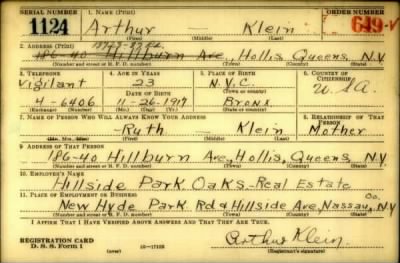 SERIAL NUMBER 1. NAME (Print) ORDER NUMBER
1124 Arthur Klein
(First) (Middle) (Last)
2. ADDRESS (Print)
186-40 Hillburn Ave, Hollis, Queens, N.Y
(Number and street or R. F. D. number) (Town) (County) (State)
3. TELEPHONE 4. AGE IN YEARS 5. PLACE OF BIRTH 6. COUNTRY OF CITIZENSHIP
Vigilant 23 N.Y.C. U.S.A.
DATE OF BIRTH (Town or county)
4-6406 11-26-1917 Bronx
(Exchange) (Number) (Mo.) (Day) (Yr.) (State or country)
7. NAME OF PERSON WHO WILL ALWAYS KNOW YOUR ADDRESS 8. RELATIONSHIP OF THAT PERSON
Ruth Klein Mother
(Mr., Mrs., Miss) (First) (Middle) (Last)
9. ADDRESS OF THAT PERSON
186-40 Hillburn Ave, Hollis, Queens, N.Y
(Number and street or R. F. D. number) (Town) (County) (State)
10. EMPLOYER'S NAME
Hillside Park Oaks-Real Estate
11. PLACE OF EMPLOYMENT OR BUSINESS
New Hyde Park Rd & Hillside Ave, Nassau, Co. N.Y
(Number and street or R. F. D. number) (Town) (County) (State)
I AFFIRM THAT I HAVE VERIFIED ABOVE ANSWERS AND THAT THEY ARE TRUE.
REGISTRATION CARD
D. S. S. Form 1 (over) Arthur Klein
(Registrant's signature)